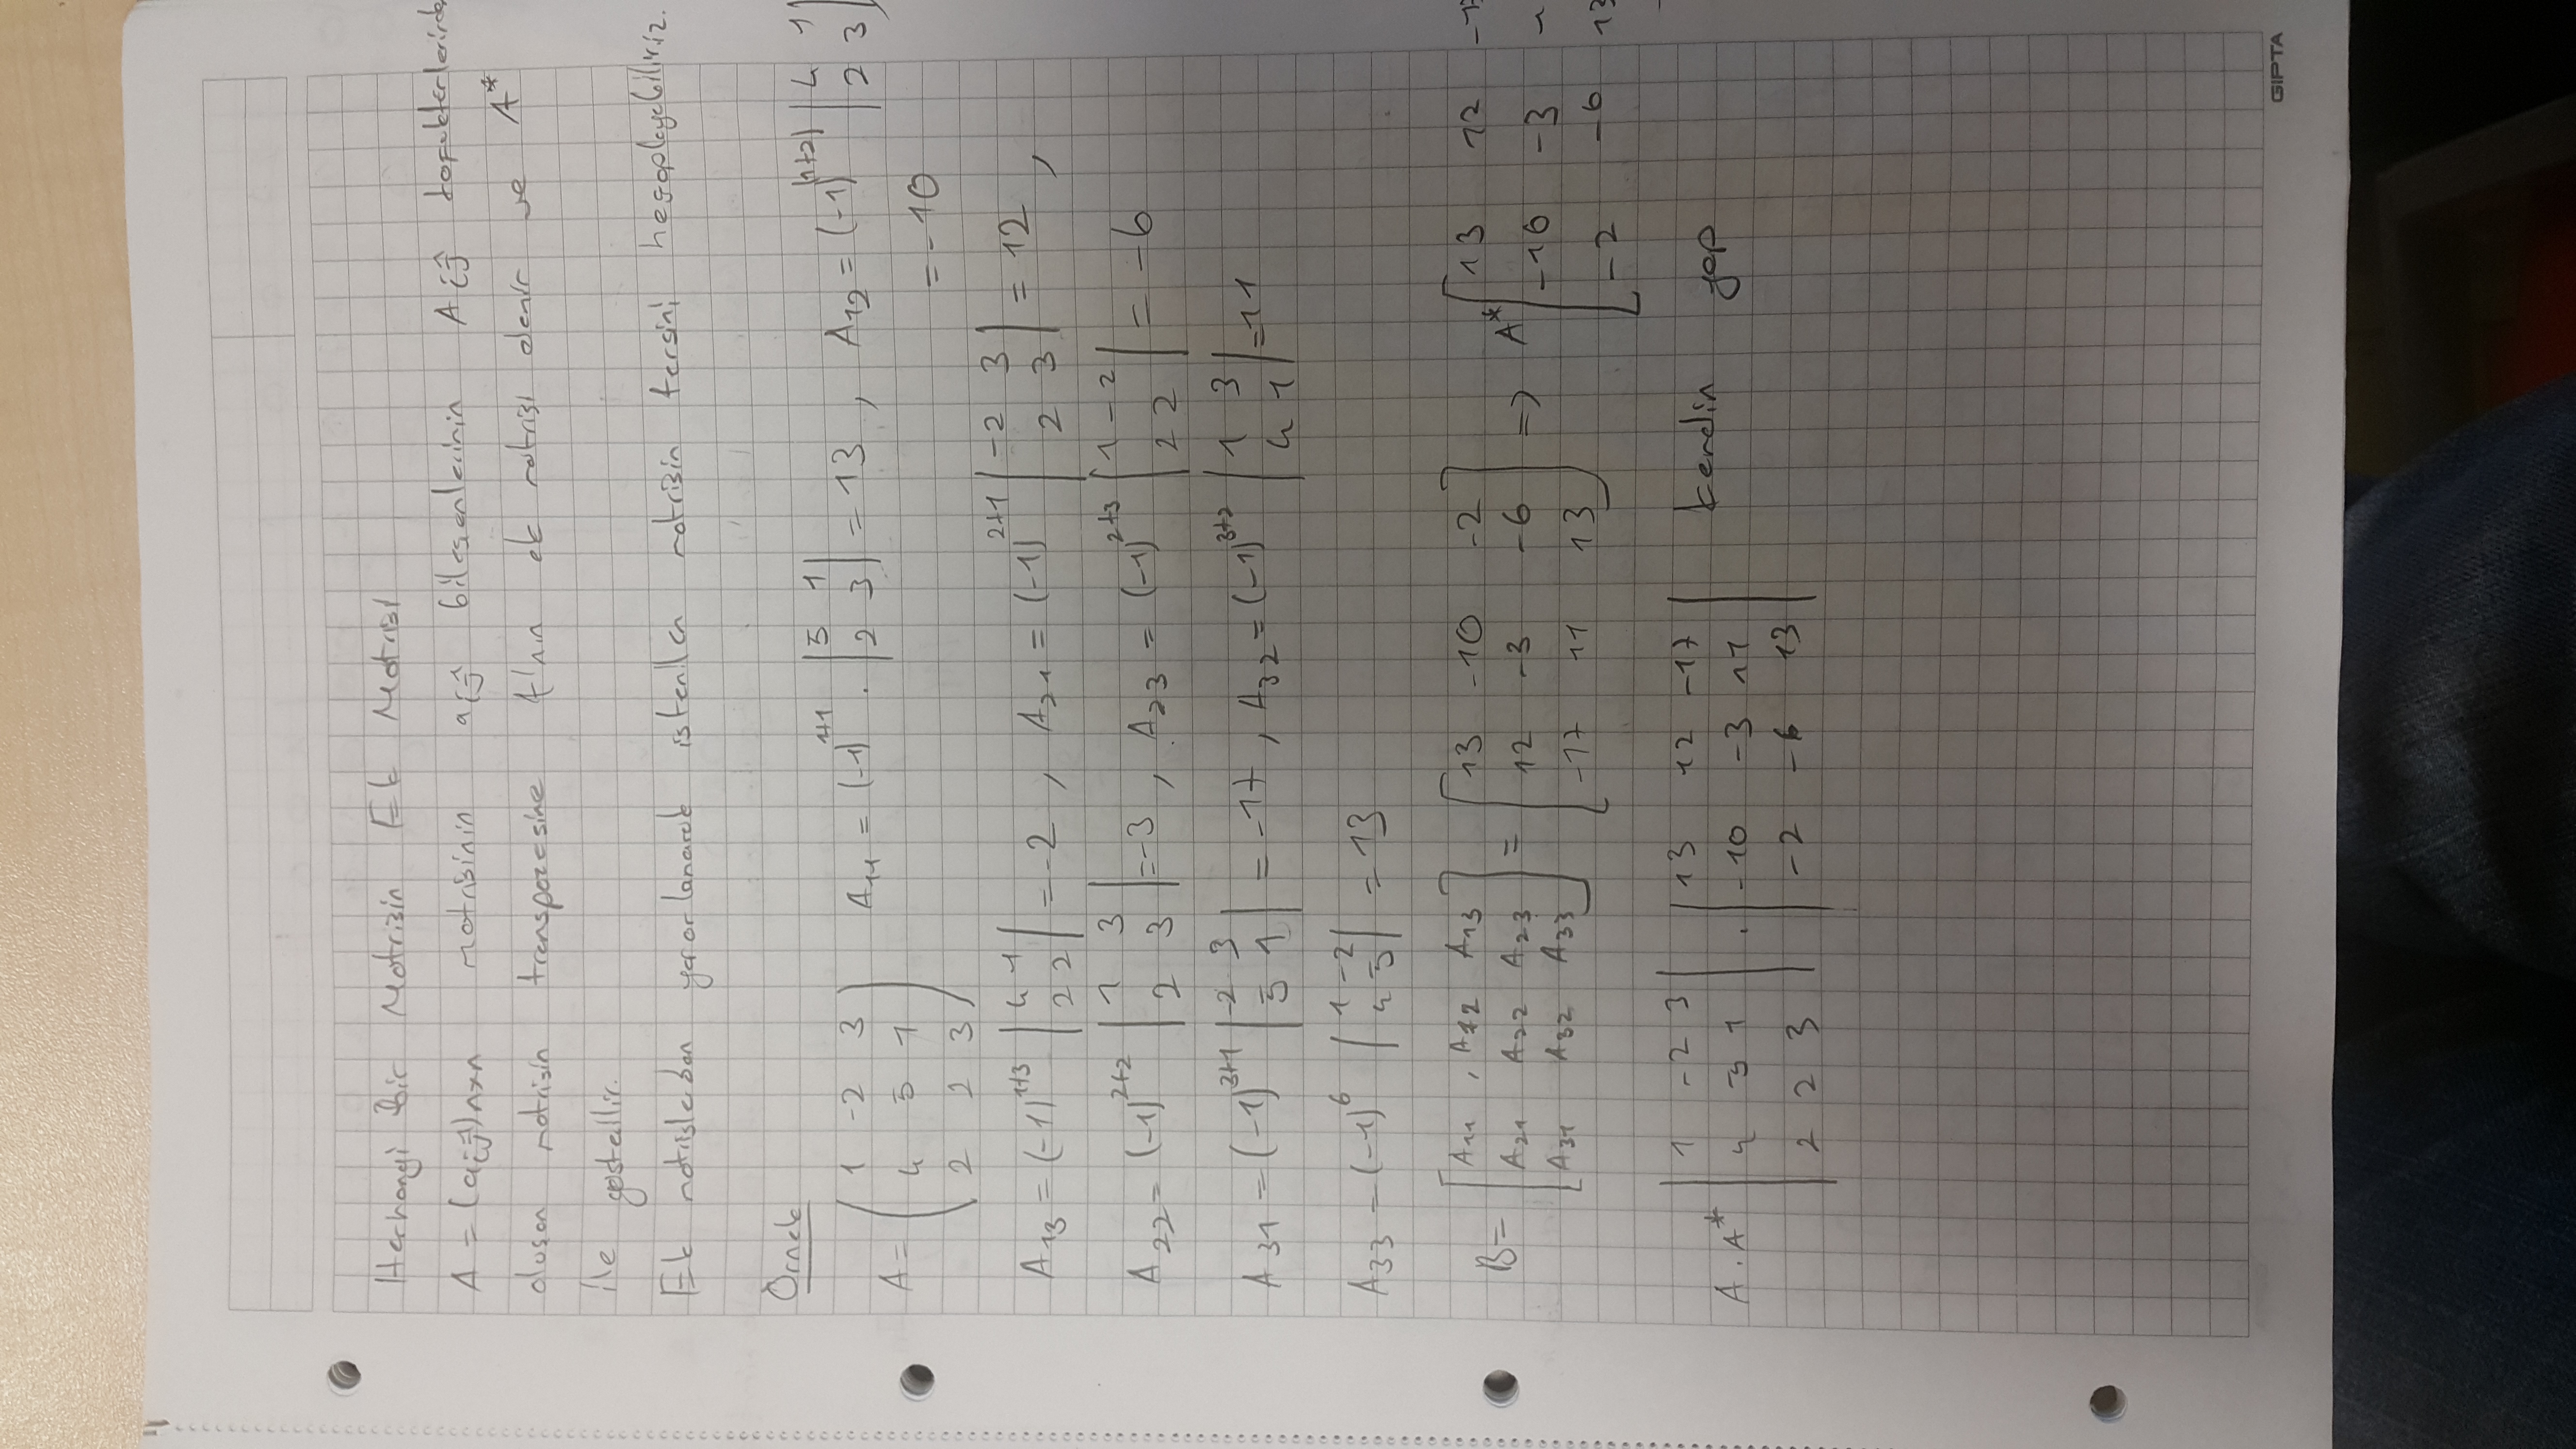 Herhangi Bir Matrisin Ek Matrisi
A = (aij)nxn matrisinin aij bileşenlerinin Aij kofaktörlerinde
oluşan matrisin transpozesine A'nın ek matrisi denir ve A*
ile gösterilir.
Ek matrislerden yararlanarak istenilen matrisin tersini hesaplayabiliriz.
Örnek
A = ( 1 -2 3 / 4 5 1 / 2 2 3 ) A11 = (-1)^1+1 . | 5 1 / 2 3 | = 13 , A12 = (-1)^(1+2) | 4 1 / 2 3 |
= -10
A13 = (-1)^1+3 | 4 1 / 2 2 | = -2 , A21 = (-1)^2+1 | -2 3 / 2 3 | = 12 ,
A22 = (-1)^2+2 | 1 3 / 2 3 | = -3 , A23 = (-1)^2+3 | 1 -2 / 2 2 | = -6
A31 = (-1)^3+1 | -2 3 / 5 1 | = -17 , A32 = (-1)^3+2 | 1 3 / 4 1 | = 11
A33 = (-1)^6 | 1 -2 / 4 5 | = 13
B = [ A11 , A12 A13 / A21 A22 A23 / A31 A32 A33 ] = [ 13 -10 -2 / 12 -3 -6 / -17 11 13 ] => A* [ 13 12 -17 / -10 -3 / -2 -6 13
A . A* | 1 -2 3 / 4 5 1 / 2 2 3 | . | 13 12 -17 / -10 -3 11 / -2 -6 13 | kendin yap
GIPTA